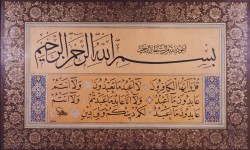 اعوذ بالله من الشيطان الرجيم
بسم الله الرحمن الرحيم
قل يا ايها الكافرون لا اعبد ما تعبدون ولا انتم
عابدون ما اعبد ولا انا عابد ما عبدتم ولا انتم
عابدون ما اعبد لكم دينكم ولي دين